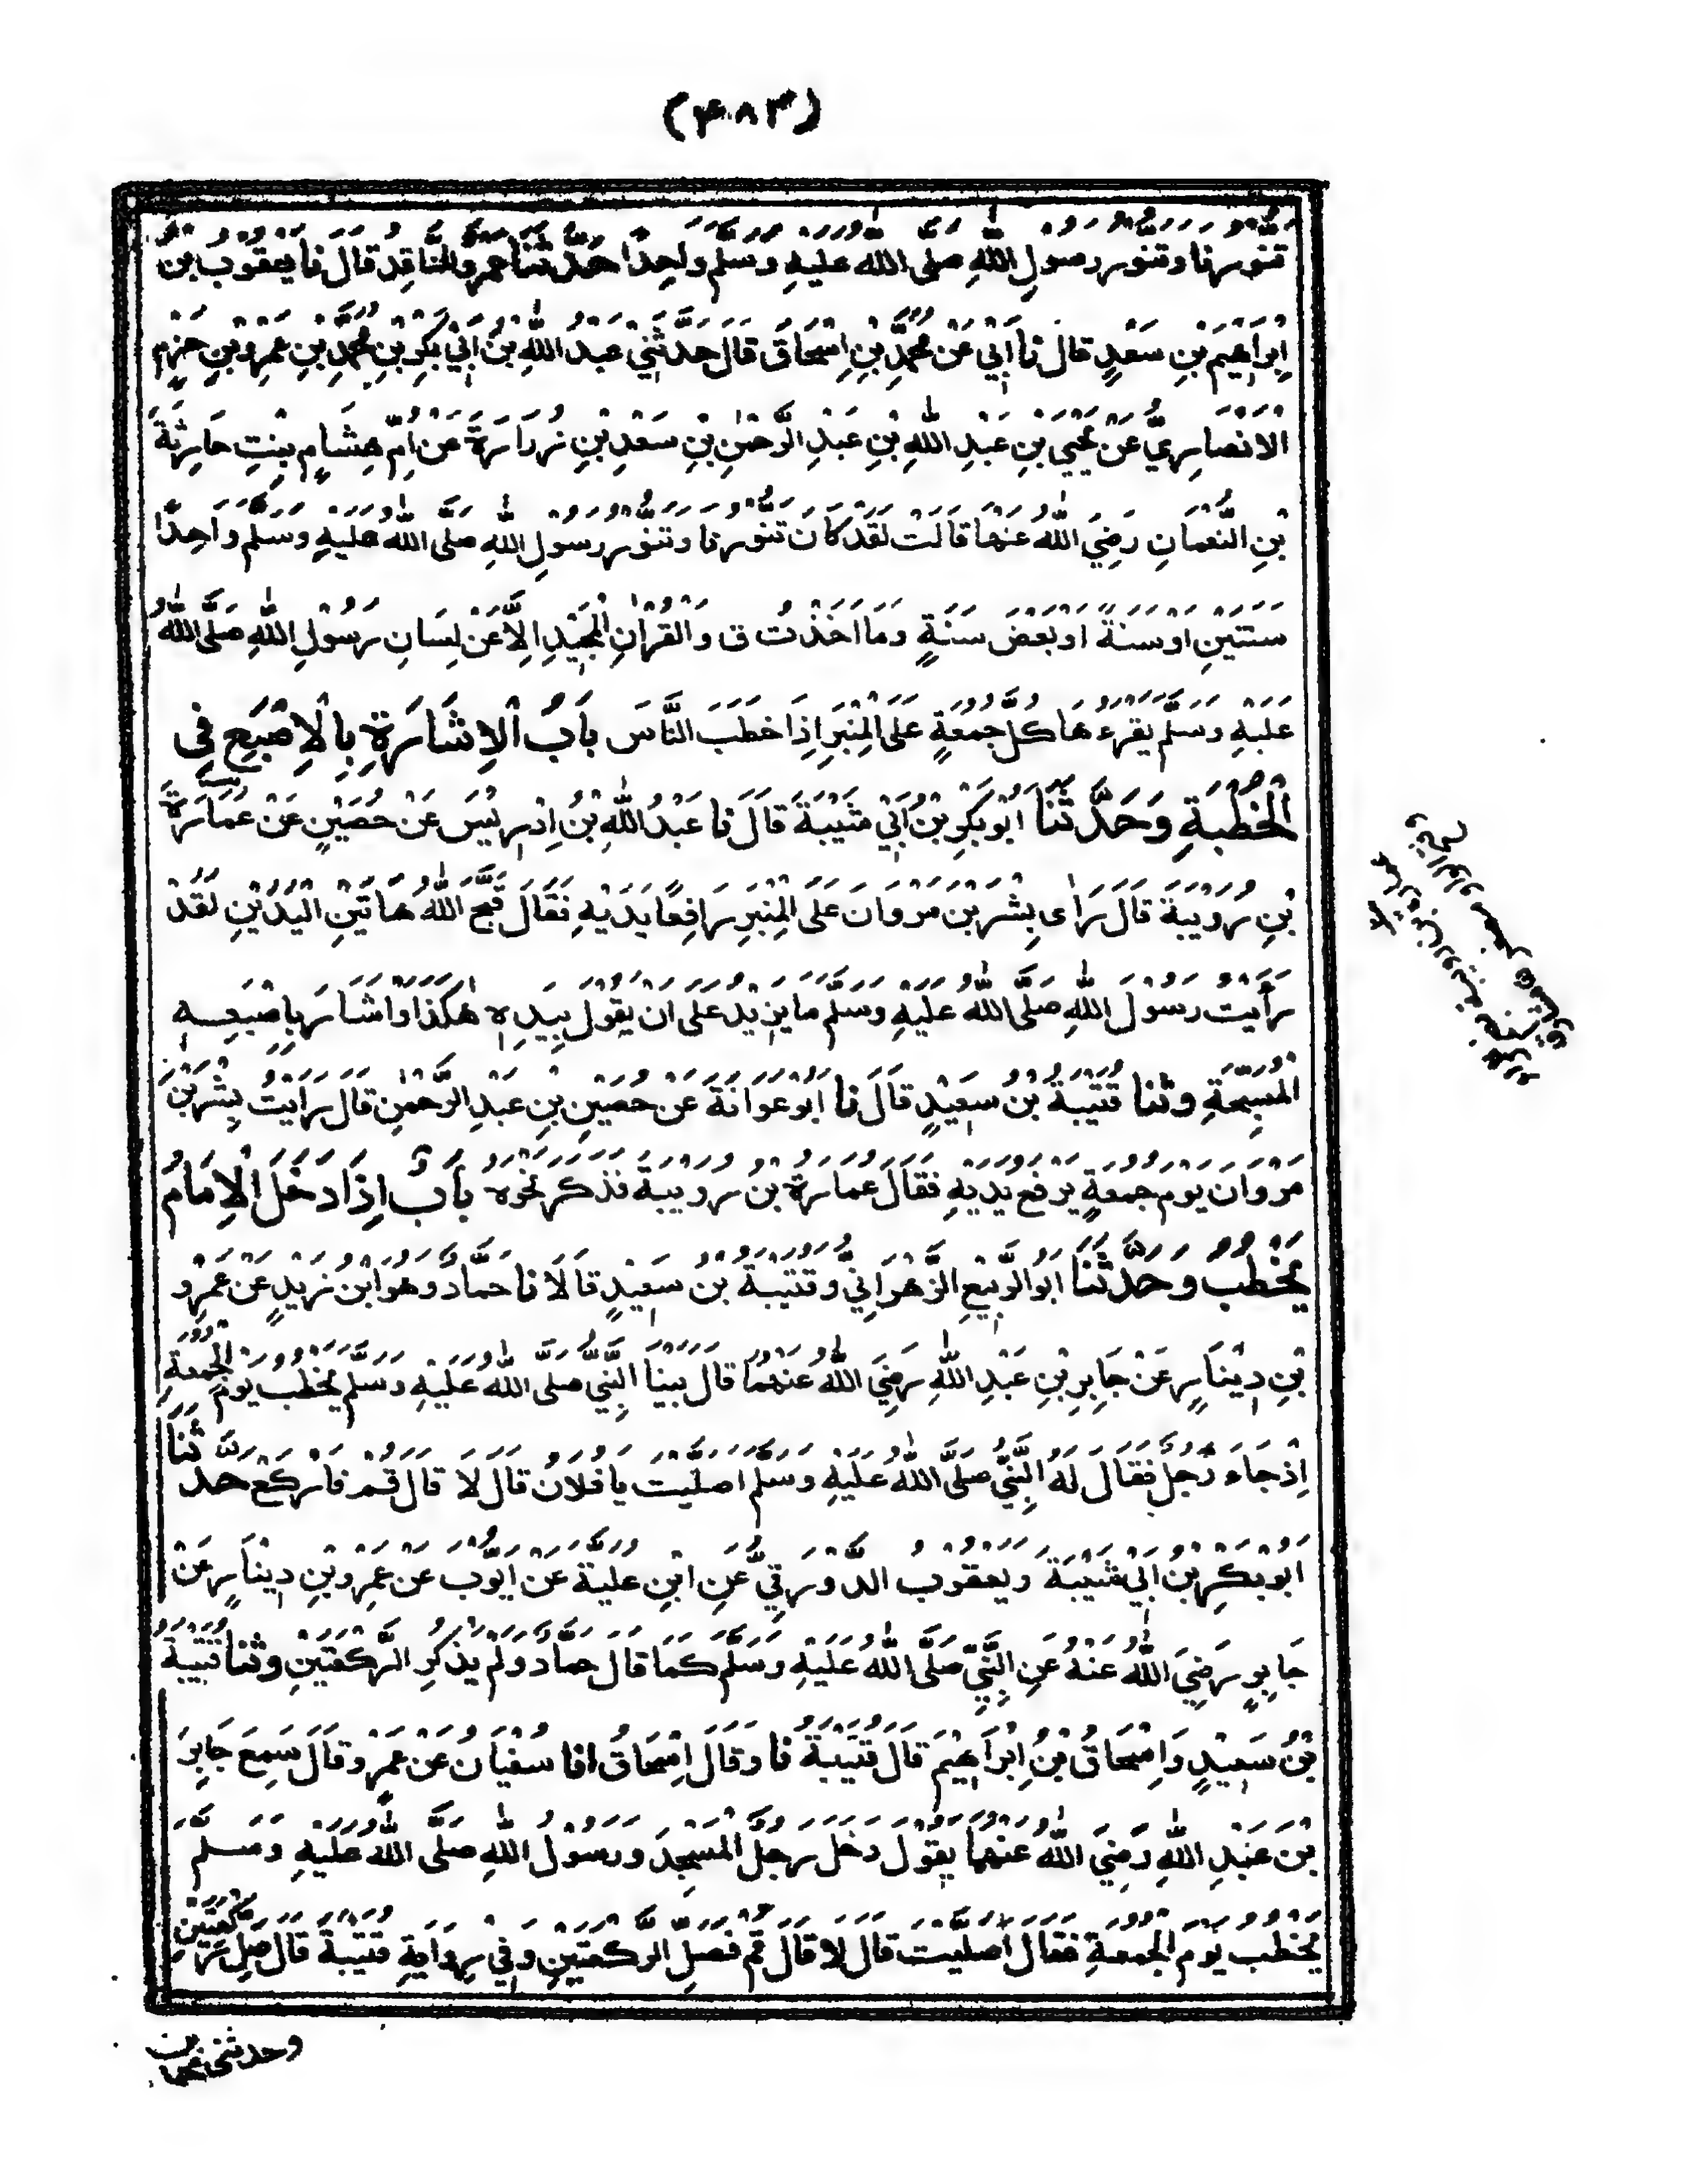 (۴۸۳)
تَنُّوْرُنَا وَتَنُّوْرُ رَسُوْلِ اللّٰهِ صَلَّى اللّٰهُ عَلَيْهِ وَسَلَّمَ وَاحِدًا حَدَّثَنَا عَمْرٌو النَّاقِدُ قَالَ نَا يَعْقُوْبُ بْنُ
اِبْرَاهِيْمَ بْنِ سَعْدٍ قَالَ نَا اَبِيْ عَنْ مُحَمَّدِ بْنِ اِسْحَاقَ قَالَ حَدَّثَنِيْ عَبْدُ اللّٰهِ بْنُ اَبِيْ بَكْرِ بْنِ مُحَمَّدِ بْنِ عَمْرِو بْنِ حَزْمٍ
الْاَنْصَارِيُّ عَنْ يَحْيَى بْنِ عَبْدِ اللّٰهِ بْنِ عَبْدِ الرَّحْمٰنِ بْنِ سَعْدِ بْنِ زُرَارَةَ عَنْ اُمِّ هِشَامٍ بِنْتِ حَارِثَةَ
بْنِ النُّعْمَانِ رَضِيَ اللّٰهُ عَنْهَا قَالَتْ لَقَدْ كَانَ تَنُّوْرُنَا وَتَنُّوْرُ رَسُوْلِ اللّٰهِ صَلَّى اللّٰهُ عَلَيْهِ وَسَلَّمَ وَاحِدًا
سَنَتَيْنِ اَوْ سَنَةً اَوْ بَعْضَ سَنَةٍ وَمَا اَخَذْتُ ق وَالْقُرْاٰنِ الْمَجِيْدِ اِلَّا عَنْ لِسَانِ رَسُوْلِ اللّٰهِ صَلَّى اللّٰهُ
عَلَيْهِ وَسَلَّمَ يَقْرَءُهَا كُلَّ جُمُعَةٍ عَلَى الْمِنْبَرِ اِذَا خَطَبَ النَّاسَ بَابُ الْاِشَارَةِ بِالْاِصْبَعِ فِي
الْخُطْبَةِ وَحَدَّثَنَا اَبُوْ بَكْرِ بْنُ اَبِيْ شَيْبَةَ قَالَ نَا عَبْدُ اللّٰهِ بْنُ اِدْرِيْسَ عَنْ حُصَيْنٍ عَنْ عُمَارَةَ
بْنِ رُوَيْبَةَ قَالَ رَاٰى بِشْرَ بْنَ مَرْوَانَ عَلَى الْمِنْبَرِ رَافِعًا يَدَيْهِ فَقَالَ قَبَّحَ اللّٰهُ هَاتَيْنِ الْيَدَيْنِ لَقَدْ
رَاَيْتُ رَسُوْلَ اللّٰهِ صَلَّى اللّٰهُ عَلَيْهِ وَسَلَّمَ مَا يَزِيْدُ عَلٰى اَنْ يَقُوْلَ بِيَدِهٖ هٰكَذَا وَاَشَارَ بِاِصْبَعِهِ
الْمُسَبِّحَةِ وَثَنَا قُتَيْبَةُ بْنُ سَعِيْدٍ قَالَ نَا اَبُوْ عَوَانَةَ عَنْ حُصَيْنِ بْنِ عَبْدِ الرَّحْمٰنِ قَالَ رَاَيْتُ بِشْرَ بْنَ
مَرْوَانَ يَوْمَ جُمُعَةٍ يَرْفَعُ يَدَيْهِ فَقَالَ عُمَارَةُ بْنُ رُوَيْبَةَ فَذَكَرَ نَحْوَهُ بَابٌ اِذَا دَخَلَ الْاِمَامُ
يَخْطُبُ وَحَدَّثَنَا اَبُو الرَّبِيْعِ الزَّهْرَانِيُّ وَقُتَيْبَةُ بْنُ سَعِيْدٍ قَالَا نَا حَمَّادٌ وَهُوَ ابْنُ زَيْدٍ عَنْ عَمْرِو
بْنِ دِيْنَارٍ عَنْ جَابِرِ بْنِ عَبْدِ اللّٰهِ رَضِيَ اللّٰهُ عَنْهُمَا قَالَ بَيْنَا النَّبِيُّ صَلَّى اللّٰهُ عَلَيْهِ وَسَلَّمَ يَخْطُبُ يَوْمَ الْجُمُعَةِ
اِذْ جَاءَ رَجُلٌ فَقَالَ لَهُ النَّبِيُّ صَلَّى اللّٰهُ عَلَيْهِ وَسَلَّمَ اَصَلَّيْتَ يَا فُلَانُ قَالَ لَا قَالَ قُمْ فَارْكَعْ حَدَّثَنَا
اَبُوْ بَكْرِ بْنُ اَبِيْ شَيْبَةَ وَيَعْقُوْبُ الدَّوْرَقِيُّ عَنِ ابْنِ عُلَيَّةَ عَنْ اَيُّوْبَ عَنْ عَمْرِو بْنِ دِيْنَارٍ عَنْ
جَابِرٍ رَضِيَ اللّٰهُ عَنْهُ عَنِ النَّبِيِّ صَلَّى اللّٰهُ عَلَيْهِ وَسَلَّمَ كَمَا قَالَ حَمَّادٌ وَلَمْ يَذْكُرِ الرَّكْعَتَيْنِ وَثَنَا قُتَيْبَةُ
بْنُ سَعِيْدٍ وَاِسْحَاقُ بْنُ اِبْرَاهِيْمَ قَالَ قُتَيْبَةُ نَا وَقَالَ اِسْحَاقُ انا سُفْيَانُ عَنْ عَمْرٍو قَالَ سَمِعَ جَابِرَ
بْنَ عَبْدِ اللّٰهِ رَضِيَ اللّٰهُ عَنْهُمَا يَقُوْلُ دَخَلَ رَجُلٌ الْمَسْجِدَ وَرَسُوْلُ اللّٰهِ صَلَّى اللّٰهُ عَلَيْهِ وَسَلَّمَ
يَخْطُبُ يَوْمَ الْجُمُعَةِ فَقَالَ اَصَلَّيْتَ قَالَ لَا قَالَ قُمْ فَصَلِّ الرَّكْعَتَيْنِ وَفِيْ رِوَايَةِ قُتَيْبَةَ قَالَ صَلِّ رَكْعَتَيْنِ
وحدثنى محمد بن